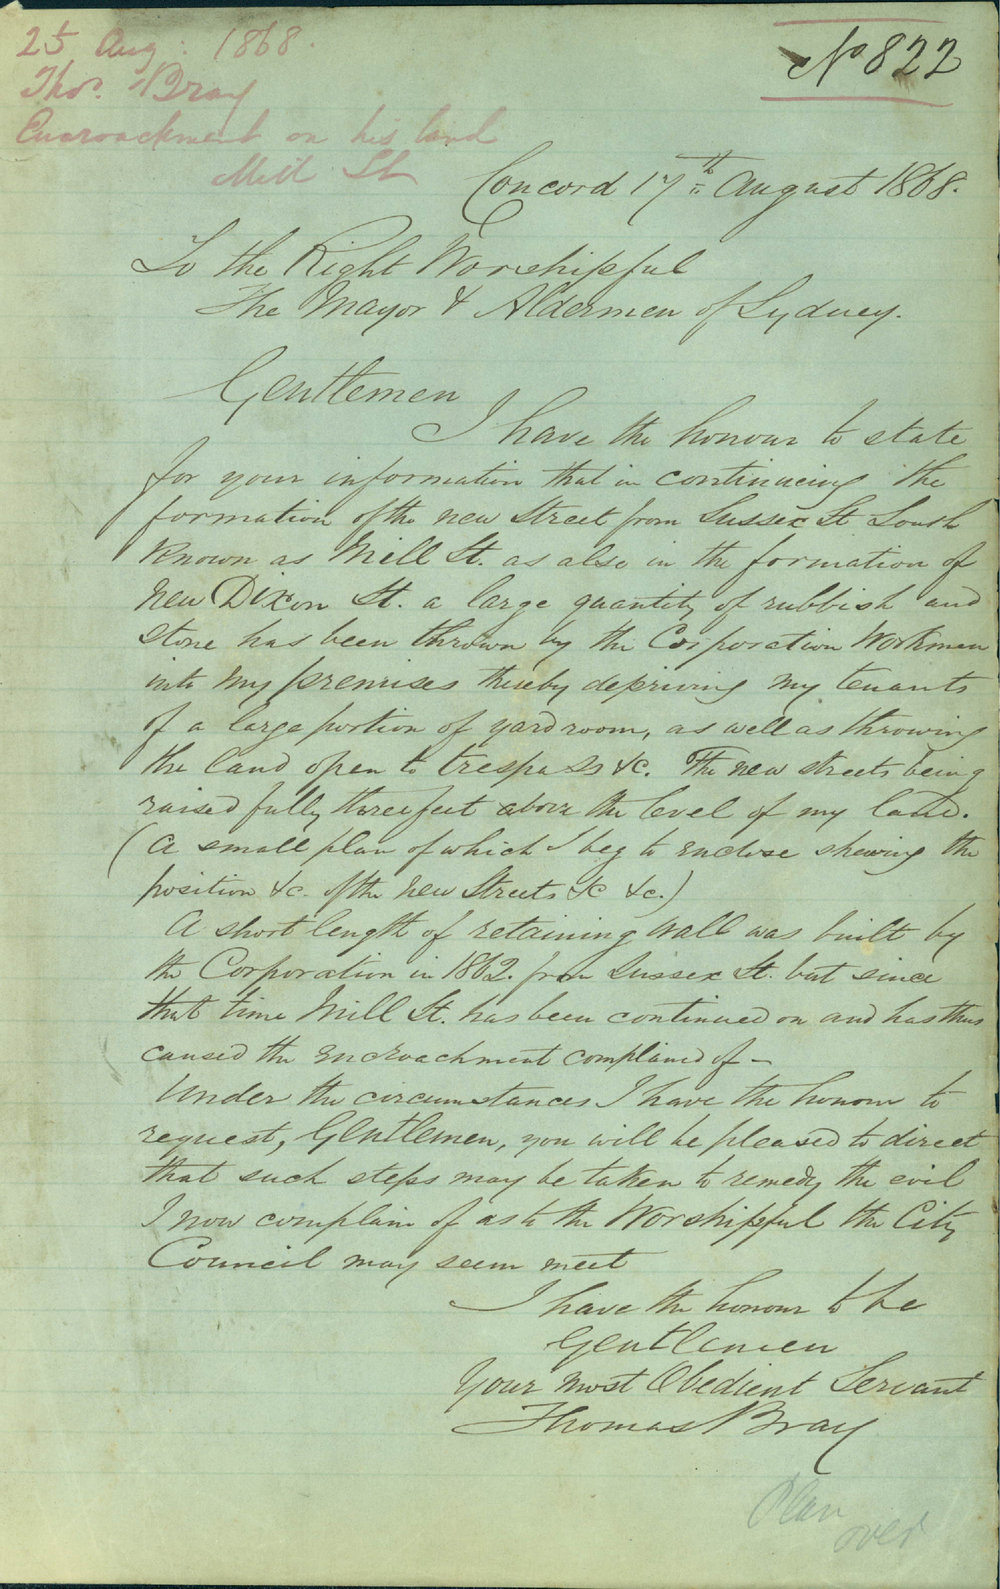 25 Aug: 1868.
Thos. Bray
Encroachment on his land
Mill St
No 822
Concord 17th August 1868.
To the Right Worshipful
The Mayor & Aldermen of Sydney.
Gentlemen
I have the honour to state
for your information that in continuing the
formation of the new Street from Sussex St South
Known as Mill St. as also in the formation of
New Dixon St. a large quantity of rubbish and
stone has been thrown by the Corporation Workmen
into my premises thereby depriving my tenants
of a large portion of yard room, as well as throwing
the land open to trespass &c. The new streets being
raised fully three feet above the level of my land.
(A small plan of which I beg to enclose shewing the
position &c. of the new Streets &c &c.)
A short length of retaining wall was built by
the Corporation in 1862. from Sussex St. but since
that time Mill St. has been continued on and has thus
caused the encroachment complained of -
Under the circumstances I have the honour to
request, Gentlemen, you will be pleased to direct
that such steps may be taken to remedy the evil
I now complain of as to the Worshipful the City
Council may seem meet
I have the honour to be
Gentlemen
Your most Obedient Servant
Thomas Bray
Plan
over